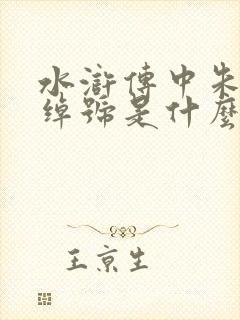 水滸傳中朱
綽號是什麼
王京生